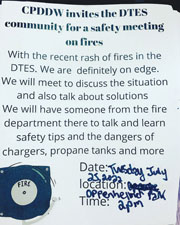 CPDDW invites the DTES
community for a safety meeting
on fires
With the recent rash of fires in the
DTES. We are definitely on edge.
We will meet to discuss the situation
and also talk about solutions
We will have someone from the fire
department there to talk and learn
safety tips and the dangers of
chargers, propane tanks and more
Date: Tuesday July
25, 2023
location:
Oppenheimer Park
Time: 2pm
FIRE